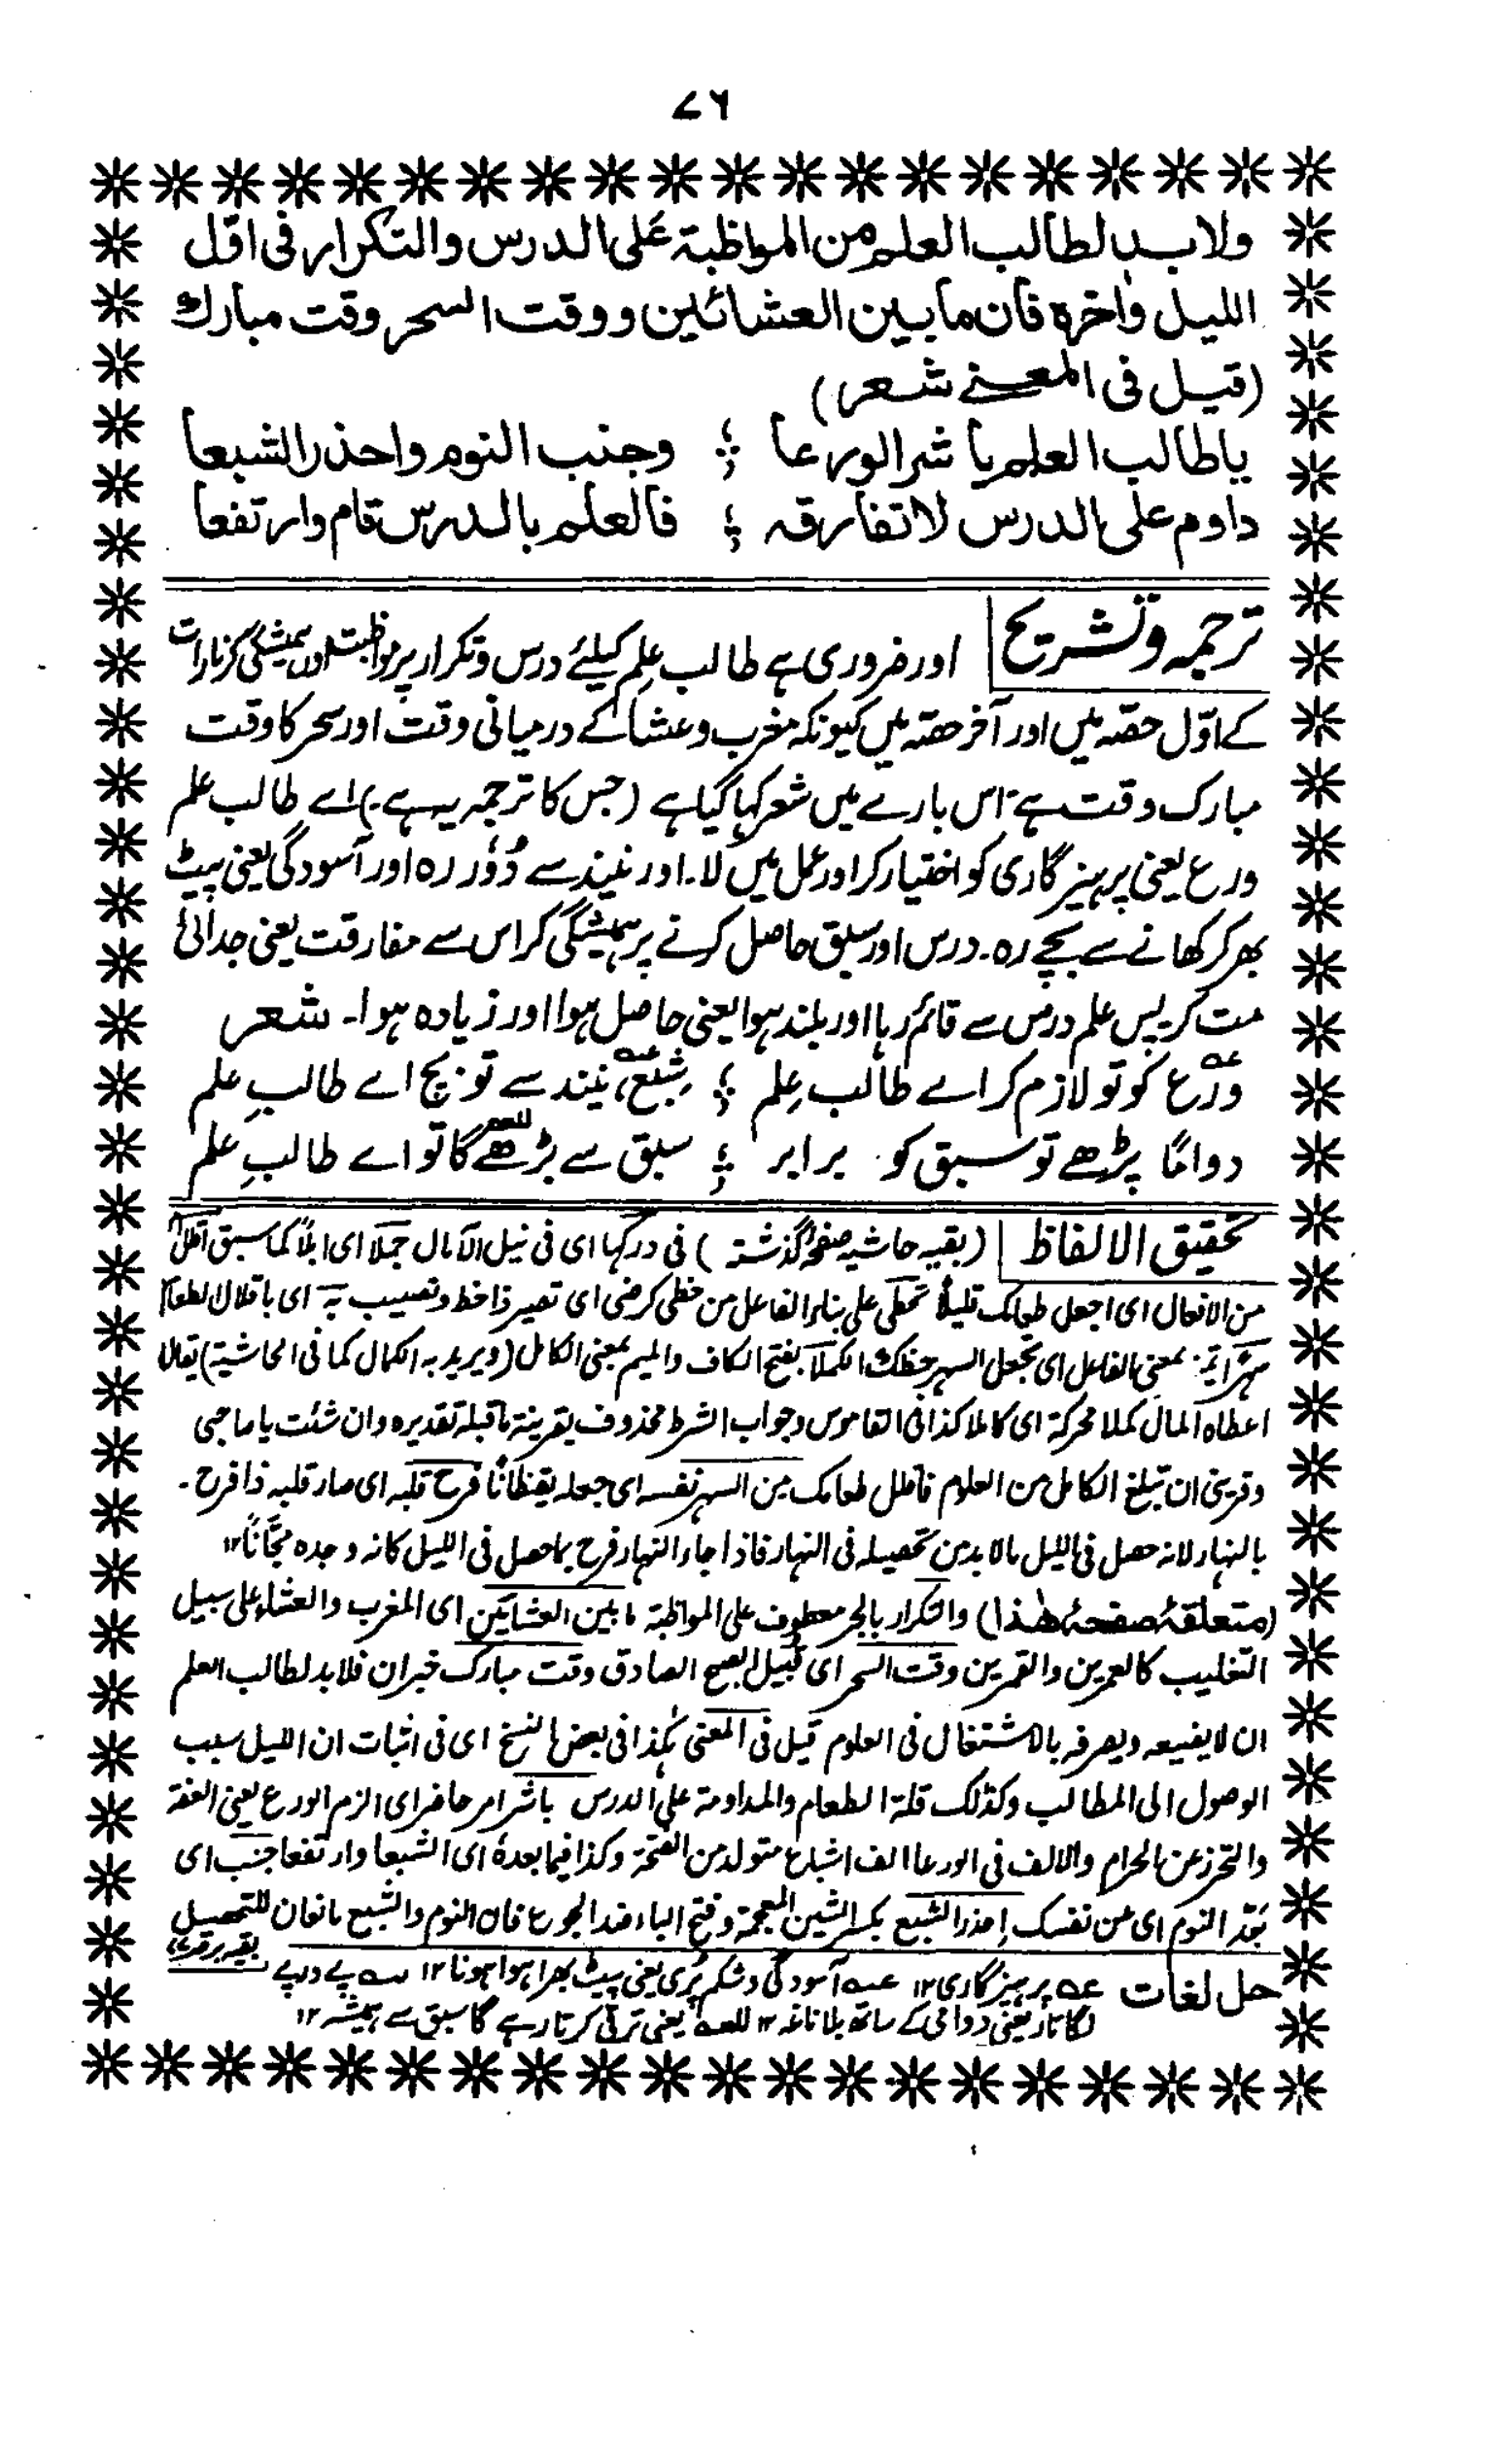 ۷۶
ولابد لطالب العلم من المواظبة على الدرس والتكرار فى اوّل
الليل واٰخره فان مابين العشائين ووقت السحر وقت مبارك
(قيل فى المعنے شعر)
ياطالب العلم باشر الورعا ؛ وجنب النوم واحذر الشبعا
داوم على الدرس لاتفارقه ؛ فالعلم بالدرس قام وارتفعا
ترجمہ وتشریح اور ضروری ہے طالب علم کیلئے درس وتکرار پر مواظبت اور ہمیشگی کرنا رات
کے اوّل حصّہ میں اور آخر حصّہ میں کیونکہ مغرب وعشا کے درمیانی وقت اور سحر کا وقت
مبارک وقت ہے اس بارے میں شعر کہا گیا ہے (جس کا ترجمہ یہ ہے) اے طالب علم
ورع یعنی پرہیزگاری کو اختیار کر اور عمل میں لا۔ اور نیند سے دُور رہ اور آسودگی یعنی پیٹ
بھر کر کھانے سے بچے رہ۔ درس اور سبق حاصل کرنے پر ہمیشگی کر اس سے مفارقت یعنی جدائی
مت کر پس علم درس سے قائم رہا اور بلند ہوا یعنی حاصل ہوا اور زیادہ ہوا۔ شعر
ورَع کو تو لازم کر اے طالب عِلم ؛ شِبَع، نیند سے تو بچ اے طالبِ علم
دوامًا پڑھے تو سبق کو برابر ؛ سبق سے بڑھے گا تو اے طالبِ علم
تحقیق الالفاظ (بقیہ حاشیہ صفحہ گذشتہ) فی درکہا ای فی نیل الآمال جملا ای ابلاً کما سبق اقلل
من الافعال ای اجعل طعامک قلیلاً تحظی علی بناء الفاعل من حظی کرضی ای تصیر ذا حظ ونصیب بہ ای باقلال الطعام
بمعنی الفاعل ای تجعل السہر حظک الکملا بفتح الکاف والمیم بمعنی الکامل (ویرید بہ الکمال کما فی الحاشیۃ) یقال
اعطاہ المال کملا محرکۃ ای کاملا کذا فی القاموس وجواب الشرط محذوف بقرینۃ ماقبلہ تقدیرہ وان شئت یا صاحبی
وقرینی ان تبلغ الکامل من العلوم فاقلل طعامک من السہر نفسہ ای جعلہ یقظانًا فرح قلبہ ای صار قلبہ ذا فرح۔
بالنہار لانہ حصل فی اللیل مالابد من تحصیلہ فی النہار فاذا جاء النہار فرح بما حصل فی اللیل کانہ وجدہ مجّانًا ۱۲
(متعلقۂ صفحۂ ھٰذا) والتکرار بالجر معطوف علی المواظبۃ مابین العشائین ای المغرب والعشاء علی سبیل
التغلیب کالعمرین والقمرین وقت السحر ای قبیل الصبح الصادق وقت مبارک خبر ان فلابد لطالب العلم
ان لا یضیعہ ویصرفہ بالاشتغال فی العلوم قیل فی المعنی کذا فی بعض النسخ ای فی اثبات ان اللیل سبب
الوصول الی المطالب وکذلک قلۃ الطعام والمداومۃ علی الدرس باشر امر حاضر ای الزم الورع یعنی العفۃ
والتحرز عن الحرام والالف فی الورعا الف اشباع متولد من الفتحۃ وکذا فیما بعدہٗ ای الشبعا وارتفعا جنب ای
بَعِّد النوم ای عن نفسک احذر الشبع بکسر الشین المعجمۃ وفتح الباء ضد الجوع فان النوم والشبع مانعان للتحصیل
حل لغات عہ پرہیزگاری ۱۲ عہ آسودگی وشکم پُری یعنی پیٹ بھرا ہوا ہونا ۱۲ پے درپے
لگاتار یعنی دوامی کے ساتھ بلاناغہ ۱۲ للعہ یعنی ترقی کرتا رہے گا سبق سے ہمیشہ ۱۲